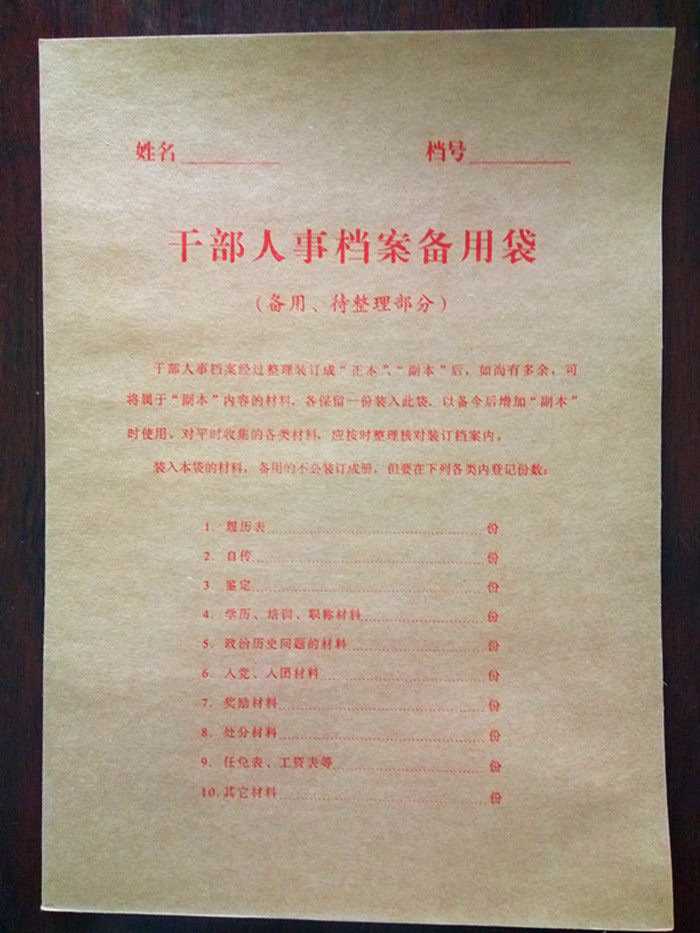 姓名 档号
干部人事档案备用袋
（备用、待整理部分）
干部人事档案经过整理装订成“正本”、“副本”后，如尚有多余，可
将属于“副本”内容的材料，各保留一份装入此袋，以备今后增加“副本”
时使用。对平时收集的各类材料，应按时整理核对装订档案内。
装入本袋的材料，备用的不必装订成册，但要在下列各类内登记份数：
1. 履历表 份
2. 自传 份
3. 鉴定 份
4. 学历、培训、职称材料 份
5. 政治历史问题的材料 份
6. 入党、入团材料 份
7. 奖励材料 份
8. 处分材料 份
9. 任免表、工资表等 份
10. 其它材料 份